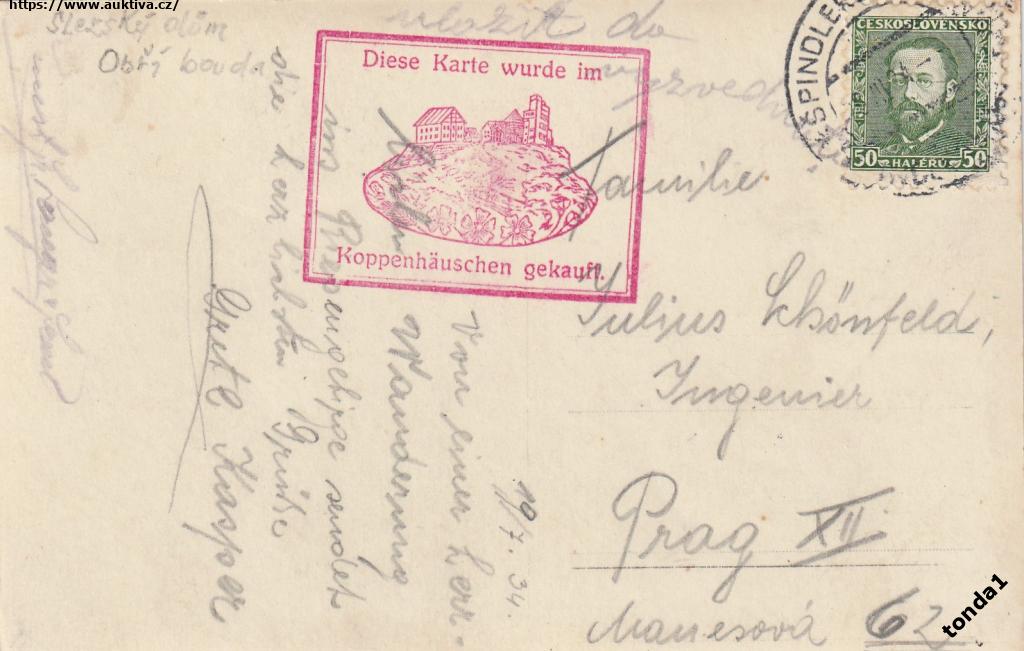 https://www.auktiva.cz/
Slezský dům
Obří bouda
vložit do
Diese Karte wurde im
Koppenhäuschen gekauft.
ŠPINDLERŮV
ČESKOSLOVENSKO
50 HALÉŘŮ 50
19/7. 34.
Von einer herr-
Wanderung
ins Riesengebirge sendet
die herzlichsten Grüße
Grete Kasper
Familie
Julius Schönfeld,
Ingenier
Prag XII
Manesová 62
tonda1